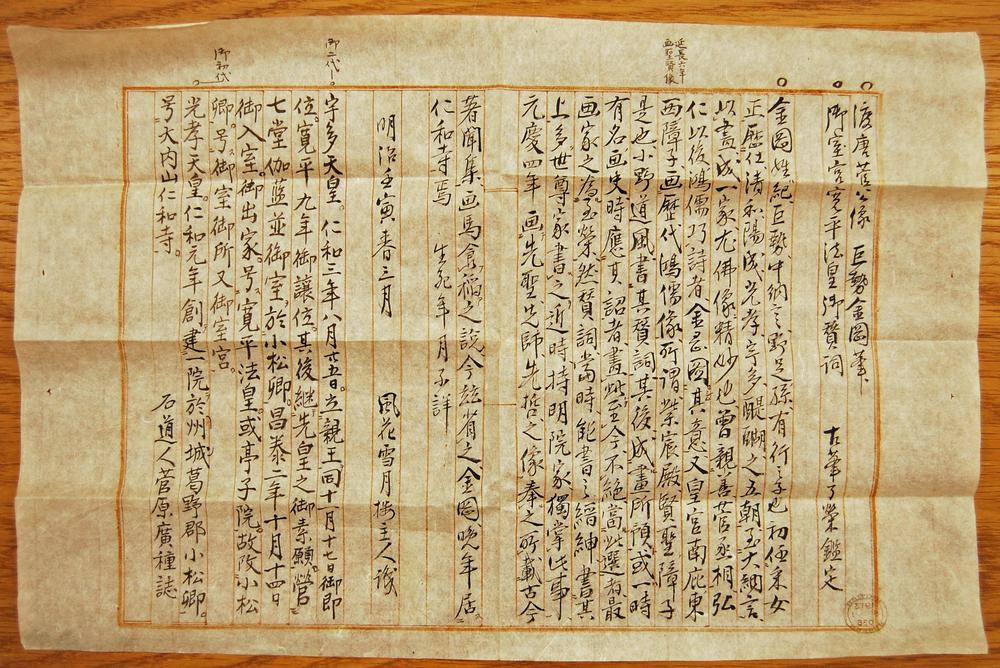 渡唐菅公像 巨勢金岡筆
御室宮寛平法皇御賛詞 古筆了栄鑑定
金岡姓紀巨勢中納言野足孫有行之子也初任采女
正歴仕清和陽成光孝宇多醍醐之五朝至大納言
以畫成一家尤佛像精妙也曽親善菅丞相弘
仁以後鴻儒巧詩者金岡図其意又皇宮南庇東
西障子画歴代鴻儒像所謂紫宸殿賢聖障子
是也小野道風書其賛詞其後成畫所預或一時
有名画史時應其詔者畫此至今不絶當此選者最
画家之為榮然賛詞當時能書之縉紳書其
上多世尊家書之近時持明院家獨掌此事
元慶四年画先聖先師先哲之像奉之所載古今
著聞集画馬食稲之説今茲省之金岡晩年居
仁和寺焉 生死年月不詳
明治壬寅春三月 風花雪月楼主人識
宇多天皇。仁和三年八月廿五日。立親王同十一月十七日御即
位。寛平九年御譲位。其後継先皇之御素願營
七堂伽藍並御室。於小松郷。昌泰二年十月十四日
御入室。御出家。号。寛平法皇。或亭子院。故改小松
郷。号御室御所又御室宮。
光孝天皇。仁和元年創建一院於州城葛野郡小松郷。
号大内山仁和寺。 石道人菅原廣種誌
延長六年
画聖賢像
御二代
御初代